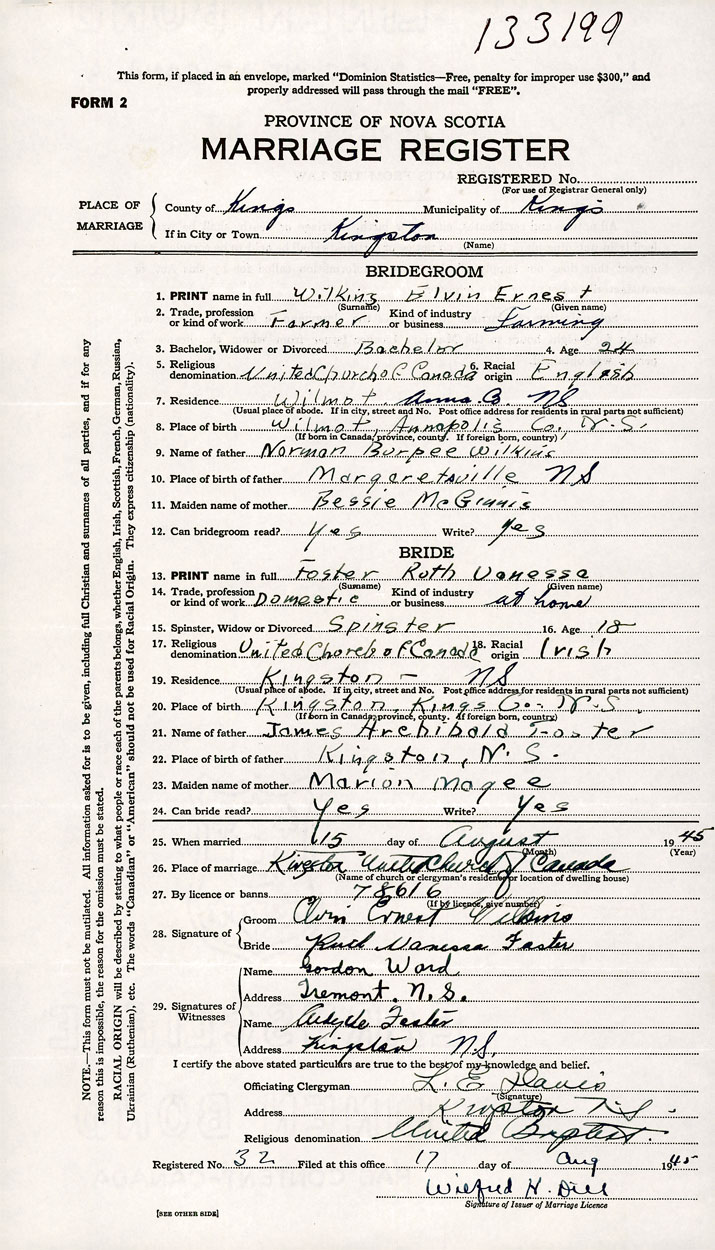 133199
This form, if placed in an envelope, marked "Dominion Statistics—Free, penalty for improper use $300," and
properly addressed will pass through the mail "FREE".
FORM 2
PROVINCE OF NOVA SCOTIA
MARRIAGE REGISTER
REGISTERED No.
(For use of Registrar General only)
PLACE OF MARRIAGE
County of Kings Municipality of Kings
If in City or Town Kingston
(Name)
BRIDEGROOM
1. PRINT name in full Wilkins Elvin Ernest
(Surname) (Given name)
2. Trade, profession or kind of work Farmer Kind of industry or business Farming
3. Bachelor, Widower or Divorced Bachelor 4. Age 24
5. Religious denomination United Church of Canada 6. Racial origin English
7. Residence Wilmot Anna. Co. NS
(Usual place of abode. If in city, street and No. Post office address for residents in rural parts not sufficient)
8. Place of birth Wilmot, Annapolis Co. N.S.
(If born in Canada, province, county. If foreign born, country)
9. Name of father Norman Burpee Wilkins
10. Place of birth of father Margaretsville NS
11. Maiden name of mother Bessie McGinnis
12. Can bridegroom read? Yes Write? Yes
BRIDE
13. PRINT name in full Foster Ruth Vanessa
(Surname) (Given name)
14. Trade, profession or kind of work Domestic Kind of industry or business at home
15. Spinster, Widow or Divorced Spinster 16. Age 18
17. Religious denomination United Church of Canada 18. Racial origin Irish
19. Residence Kingston - NS
(Usual place of abode. If in city, street and No. Post office address for residents in rural parts not sufficient)
20. Place of birth Kingston, Kings Co. N.S.
(If born in Canada, province, county. If foreign born, country)
21. Name of father James Archibald Foster
22. Place of birth of father Kingston, N.S.
23. Maiden name of mother Marion Magee
24. Can bride read? Yes Write? Yes
25. When married 15 day of August 1945
(Month) (Year)
26. Place of marriage Kingston United Church of Canada
(Name of church or clergyman's residence or location of dwelling house)
27. By licence or banns 78616
(If by licence, give number)
28. Signature of
Groom Elvin Ernest Wilkins
Bride Ruth Vanessa Foster
29. Signatures of Witnesses
Name Gordon Ward
Address Tremont. N.S.
Name Foster
Address Kingston N.S.
I certify the above stated particulars are true to the best of my knowledge and belief.
Officiating Clergyman L. E. Davis
(Signature)
Address Kingston N.S.
Religious denomination United Baptist.
Registered No. 32 Filed at this office 17 day of Aug 1945
Wilfred H. Dill
Signature of Issuer of Marriage Licence
[SEE OTHER SIDE]
NOTE.—This form must not be mutilated. All information asked for is to be given, including full Christian and surnames of all parties, and if for any
reason this is impossible, the reason for the omission must be stated.
RACIAL ORIGIN will be described by stating to what people or race each of the parents belongs, whether English, Irish, Scottish, French, German, Russian,
Ukrainian (Ruthenian), etc. The words "Canadian" or "American" should not be used for Racial Origin. They express citizenship (nationality).